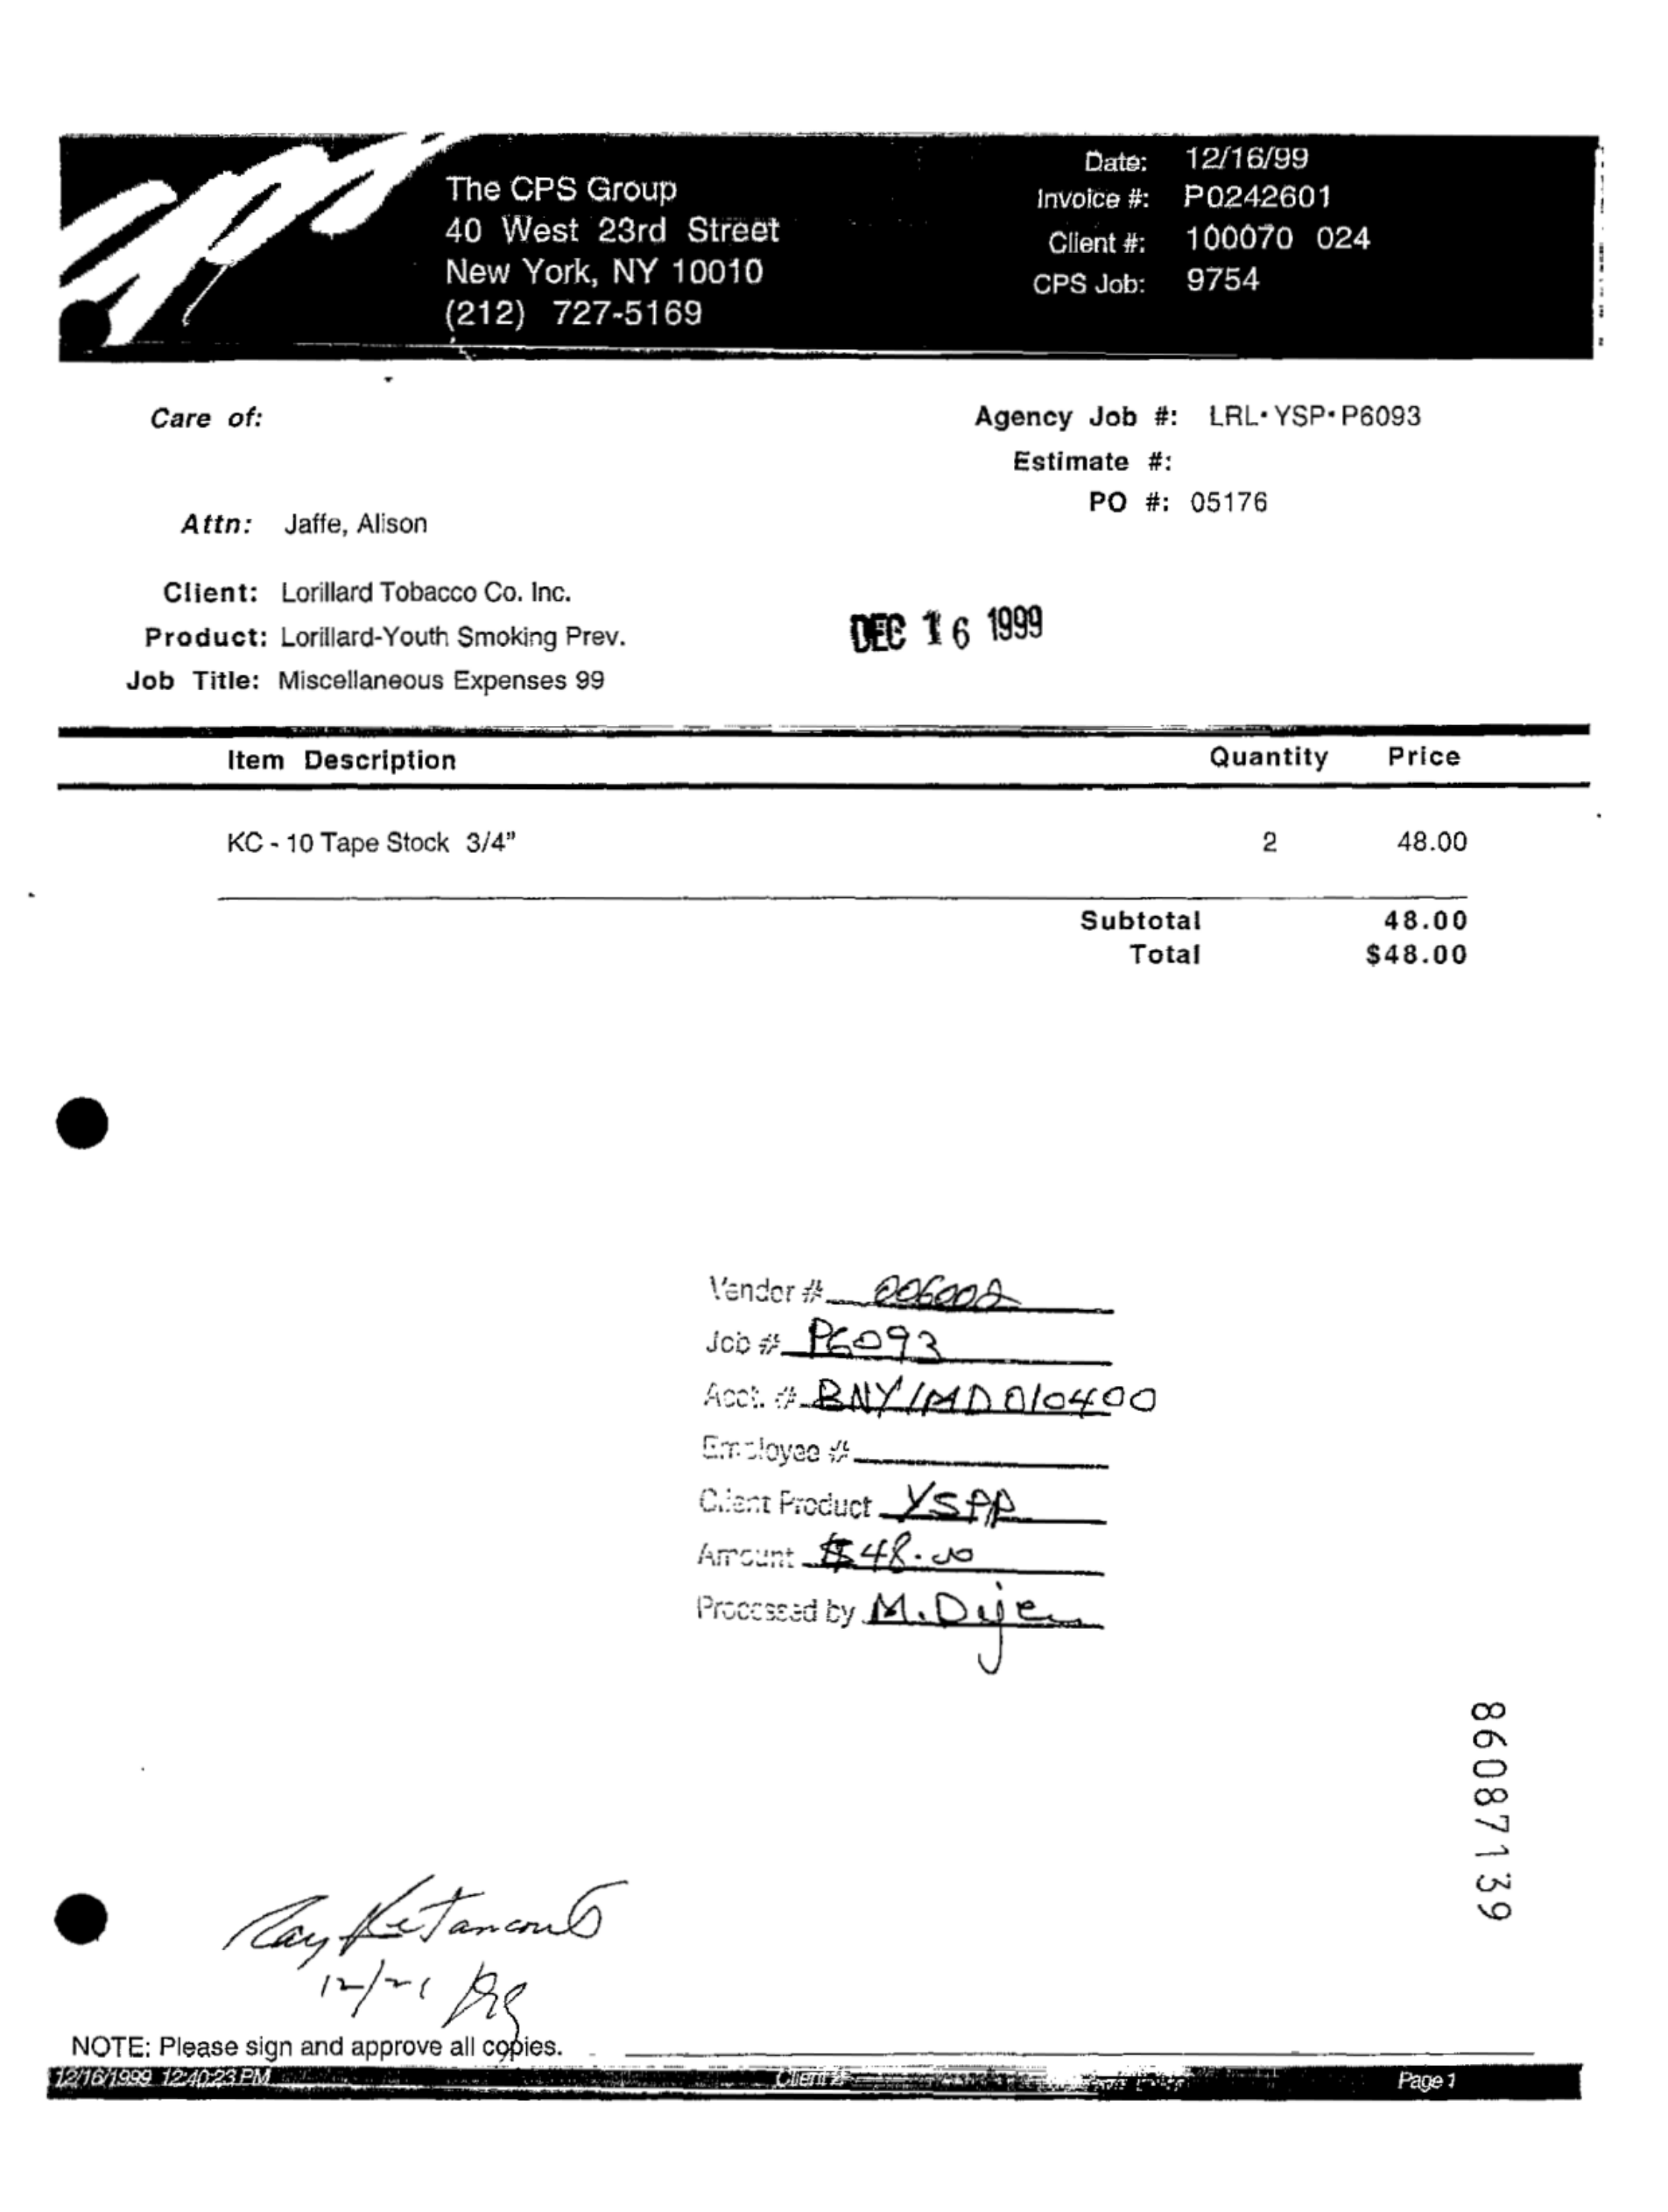 The CPS Group
40 West 23rd Street
New York, NY 10010
(212) 727-5169
Date: 12/16/99
Invoice #: P0242601
Client #: 100070 024
CPS Job: 9754
Care of:
Agency Job #: LRL•YSP•P6093
Estimate #:
PO #: 05176
Attn: Jaffe, Alison
Client: Lorillard Tobacco Co. Inc.
Product: Lorillard-Youth Smoking Prev.
Job Title: Miscellaneous Expenses 99
DEC 16 1999
Item Description Quantity Price
KC - 10 Tape Stock 3/4" 2 48.00
Subtotal 48.00
Total $48.00
Vendor # 006002
Job # P6093
Acct. # BNY/MD010400
Employee #
Client Product YSPP
Amount $48.00
Processed by M.
86087139
Ray
12/21
NOTE: Please sign and approve all copies.
12/16/1999 12:40:23 PM
Page 1